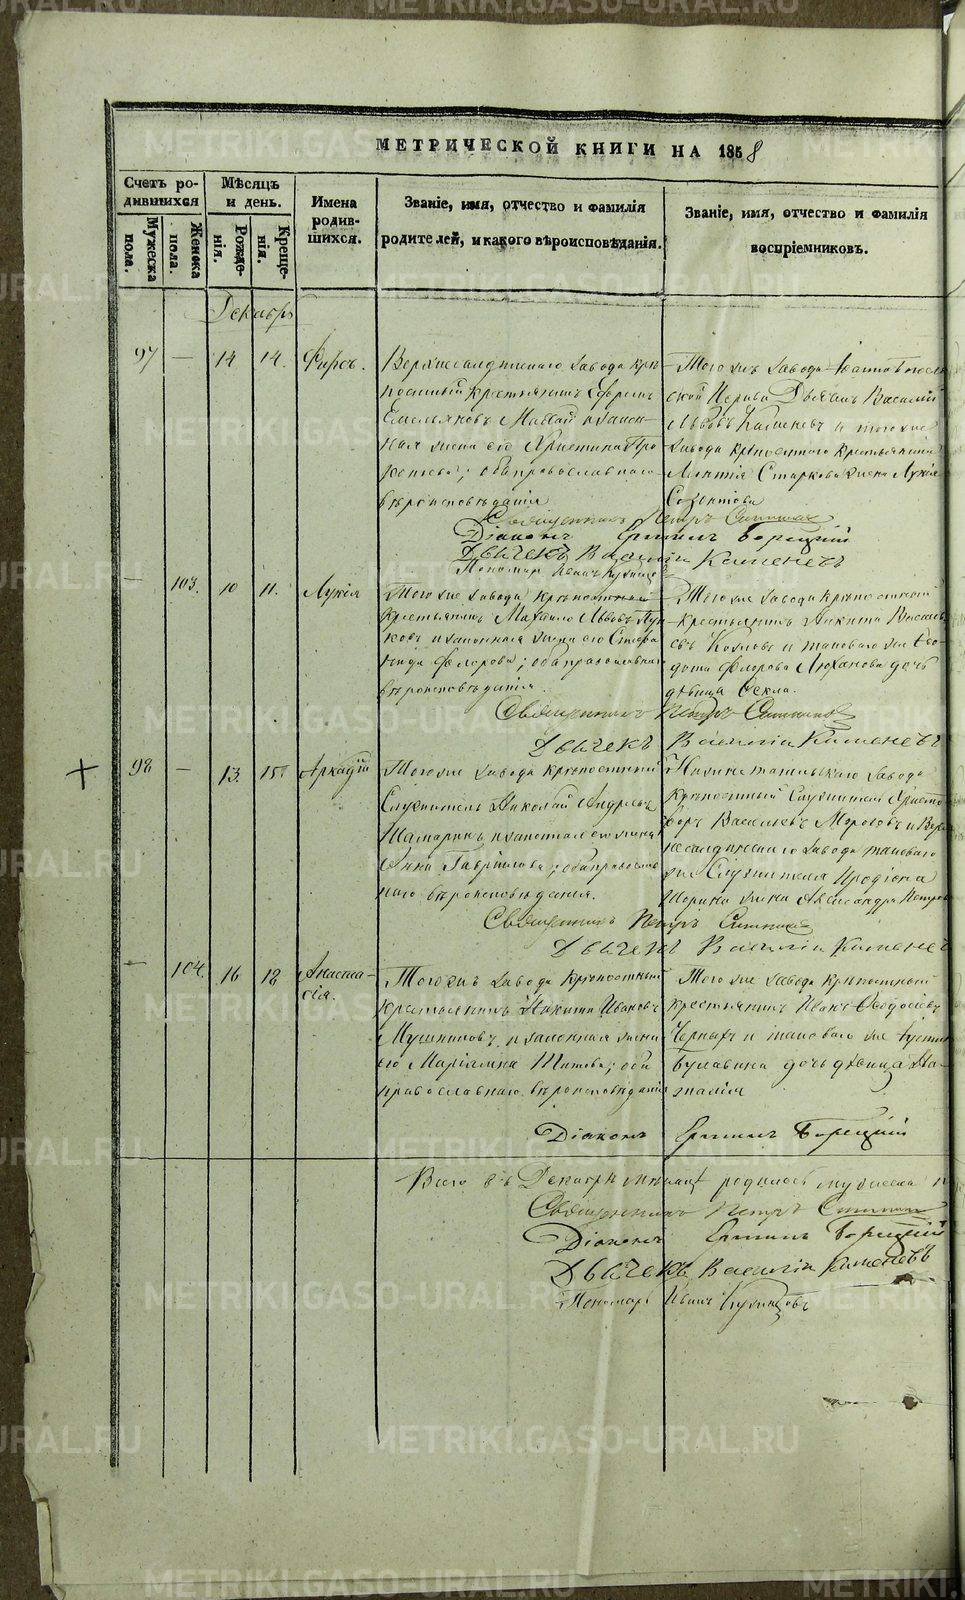 МЕТРИЧЕСКОЙ КНИГИ НА 1858
Счетъ ро-
дившихся
Мужеска
пола.
Женска
пола.
Мѣсяцъ
и день.
Рожде-
нія.
Креще-
нія.
Имена
родив-
шихся.
Званіе, имя, отчество и фамилія
родителей, и какого вѣроисповѣданія.
Званіе, имя, отчество и фамилія
воспріемниковъ.
Декабрь
97 — 14 14. Фирсъ.
Верхнесалдинскаго завода крѣ
постный крестьянинъ Ефремъ
Емельяновъ и закон-
ная жена его Христина Про
копьева; оба православнаго
вѣроисповѣданія
Того же завода Іоанно Богослов
ской Церкви Дьячекъ Василий
Львовъ Каменевъ и того же
завода крѣпостнаго крестьянина
Старкова жена Лукія
Созонтова
Священникъ Петръ
Діаконъ Ермилъ Борецкій
Дьячекъ Василій Каменевъ
Пономарь Иванъ Кузнецовъ
— 103. 10 11. Лукія
Того же завода крѣпостной
крестьянинъ Михаило Львовъ
и законная жена его Стефа
нида Федорова; оба православнаго
вѣроисповѣданія.
Того же завода крѣпостной
крестьянинъ Никита Василь
евъ Козловъ и таковаго же Ѳео
дота Федорова дочь
дѣвица Ѳекла.
Священникъ Петръ
Дьячекъ Василій Каменевъ
98 — 13. 15. Аркадій
Того же завода крѣпостный
Служитель Николай Андреевъ
Шамаринъ и законная его жена
Анна Гаврилова; оба православ
наго вѣроисповѣданія.
Нижнетагильскаго завода
крѣпостный служитель Христо
форъ Васильевъ Морозовъ и Верх
несалдинскаго завода таковаго
же Служителя Иродіона
Шорина жена Александра Петров
Священникъ Петръ
Дьячекъ Василій Каменевъ
— 104. 16 18 Анаста-
сія.
Того же завода крѣпостный
крестьянинъ Никита Ивановъ
Мушниковъ и законная жена
его Маріамна Титова; оба
православнаго вѣроисповѣданія
Того же завода крѣпостный
крестьянинъ Иванъ Ѳеодосѣевъ
Черныхъ и таковаго же
Булавина дочь дѣвица На-
талія
Діаконъ Ермилъ Борецкій
Всего въ Декабрѣ мѣсяцѣ родилось мужеска
Священникъ Петръ
Діаконъ Ермилъ Борецкій
Дьячекъ Василій Каменевъ
Пономарь Иванъ Кузнецовъ
METRIKI.GASO-URAL.RU